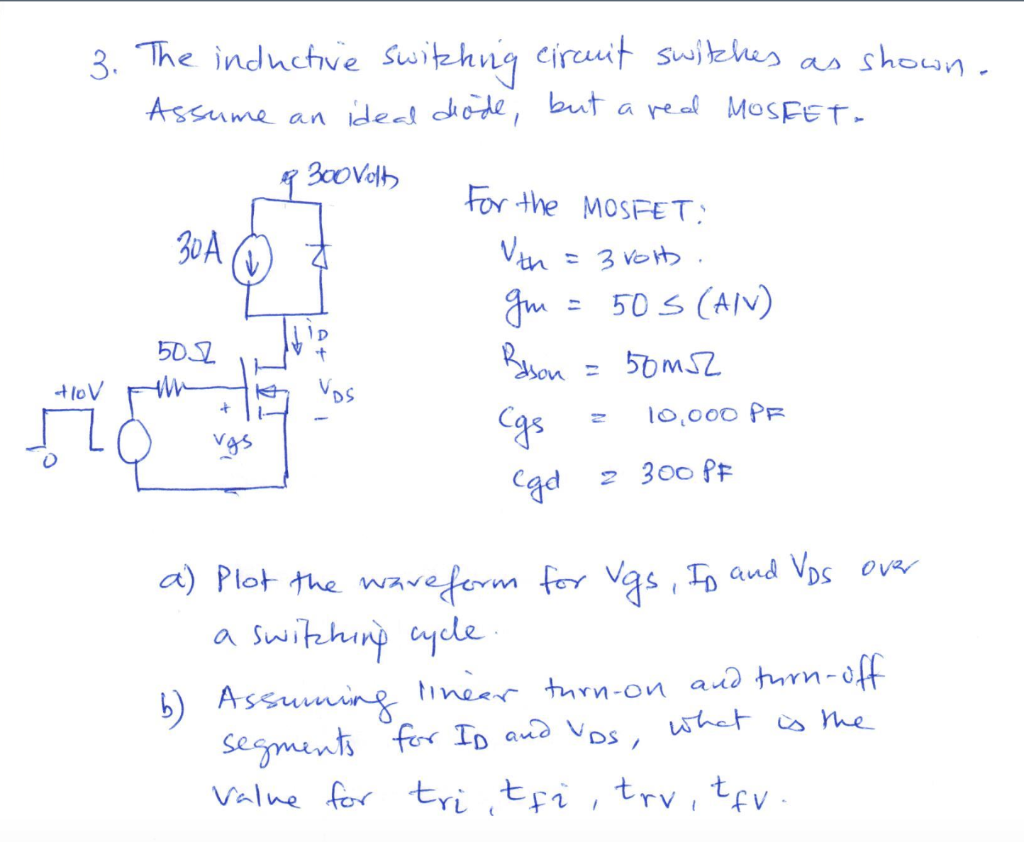 3. The inductive switching circuit switches as shown.
Assume an ideal diode, but a real MOSFET.
300 Volts
For the MOSFET:
30A
Vth = 3 volts.
gm = 50 S (A/V)
iD
50Ω
+
Rdson = 50mΩ
+10V
VDS
+
-
Cgs = 10,000 PF
vgs
-
0
Cgd = 300 PF
a) Plot the waveform for Vgs, ID and VDS over
a switching cycle.
b) Assuming linear turn-on and turn-off
segments for ID and VDS, what is the
value for tri, tfi, trv, tfv.